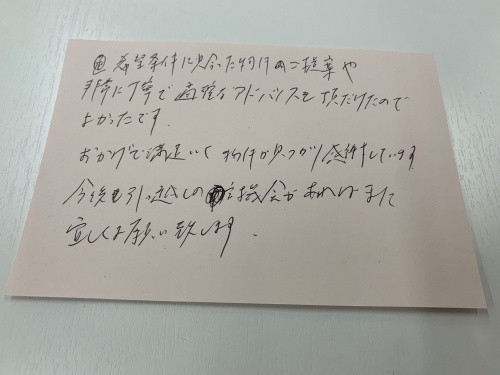 希望条件に見合った物件のご提案や
非常に丁寧で適確なアドバイスを頂だけたので
よかったです。
おかげで満足いく物件が見つかり感謝しています
今後も引っ越しの機会があればまた
宜しくお願い致します。